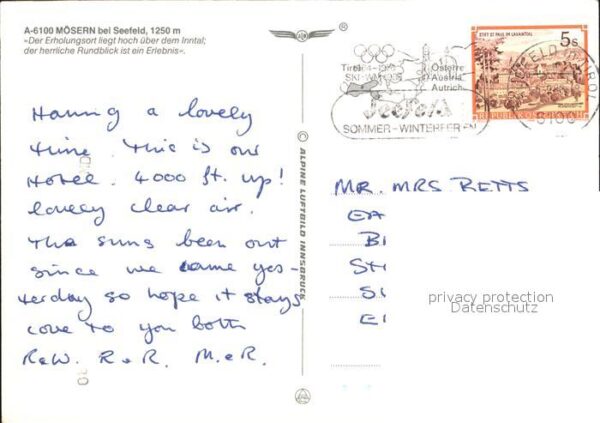 A-6100 MÖSERN bei Seefeld, 1250 m
»Der Erholungsort liegt hoch über dem Inntal;
der herrliche Rundblick ist ein Erlebnis«.
Having a lovely
time. This is our
Hotel. 4000 ft. up!
lovely clear air.
The suns been out
since we came yes-
terday so hope it stays
love to you both
R&W. R&R. M&R.
© ALPINE LUFTBILD INNSBRUCK
Tirol
Österre
Austria
Autrich
Seefeld
SOMMER - WINTERFERIEN
STIFT ST. PAUL IM LAVANTTAL
5s
REPUBLIK ÖSTERREICH
MR. MRS BETTS
EA
BI
SH
SI
EI
privacy protection
Datenschutz